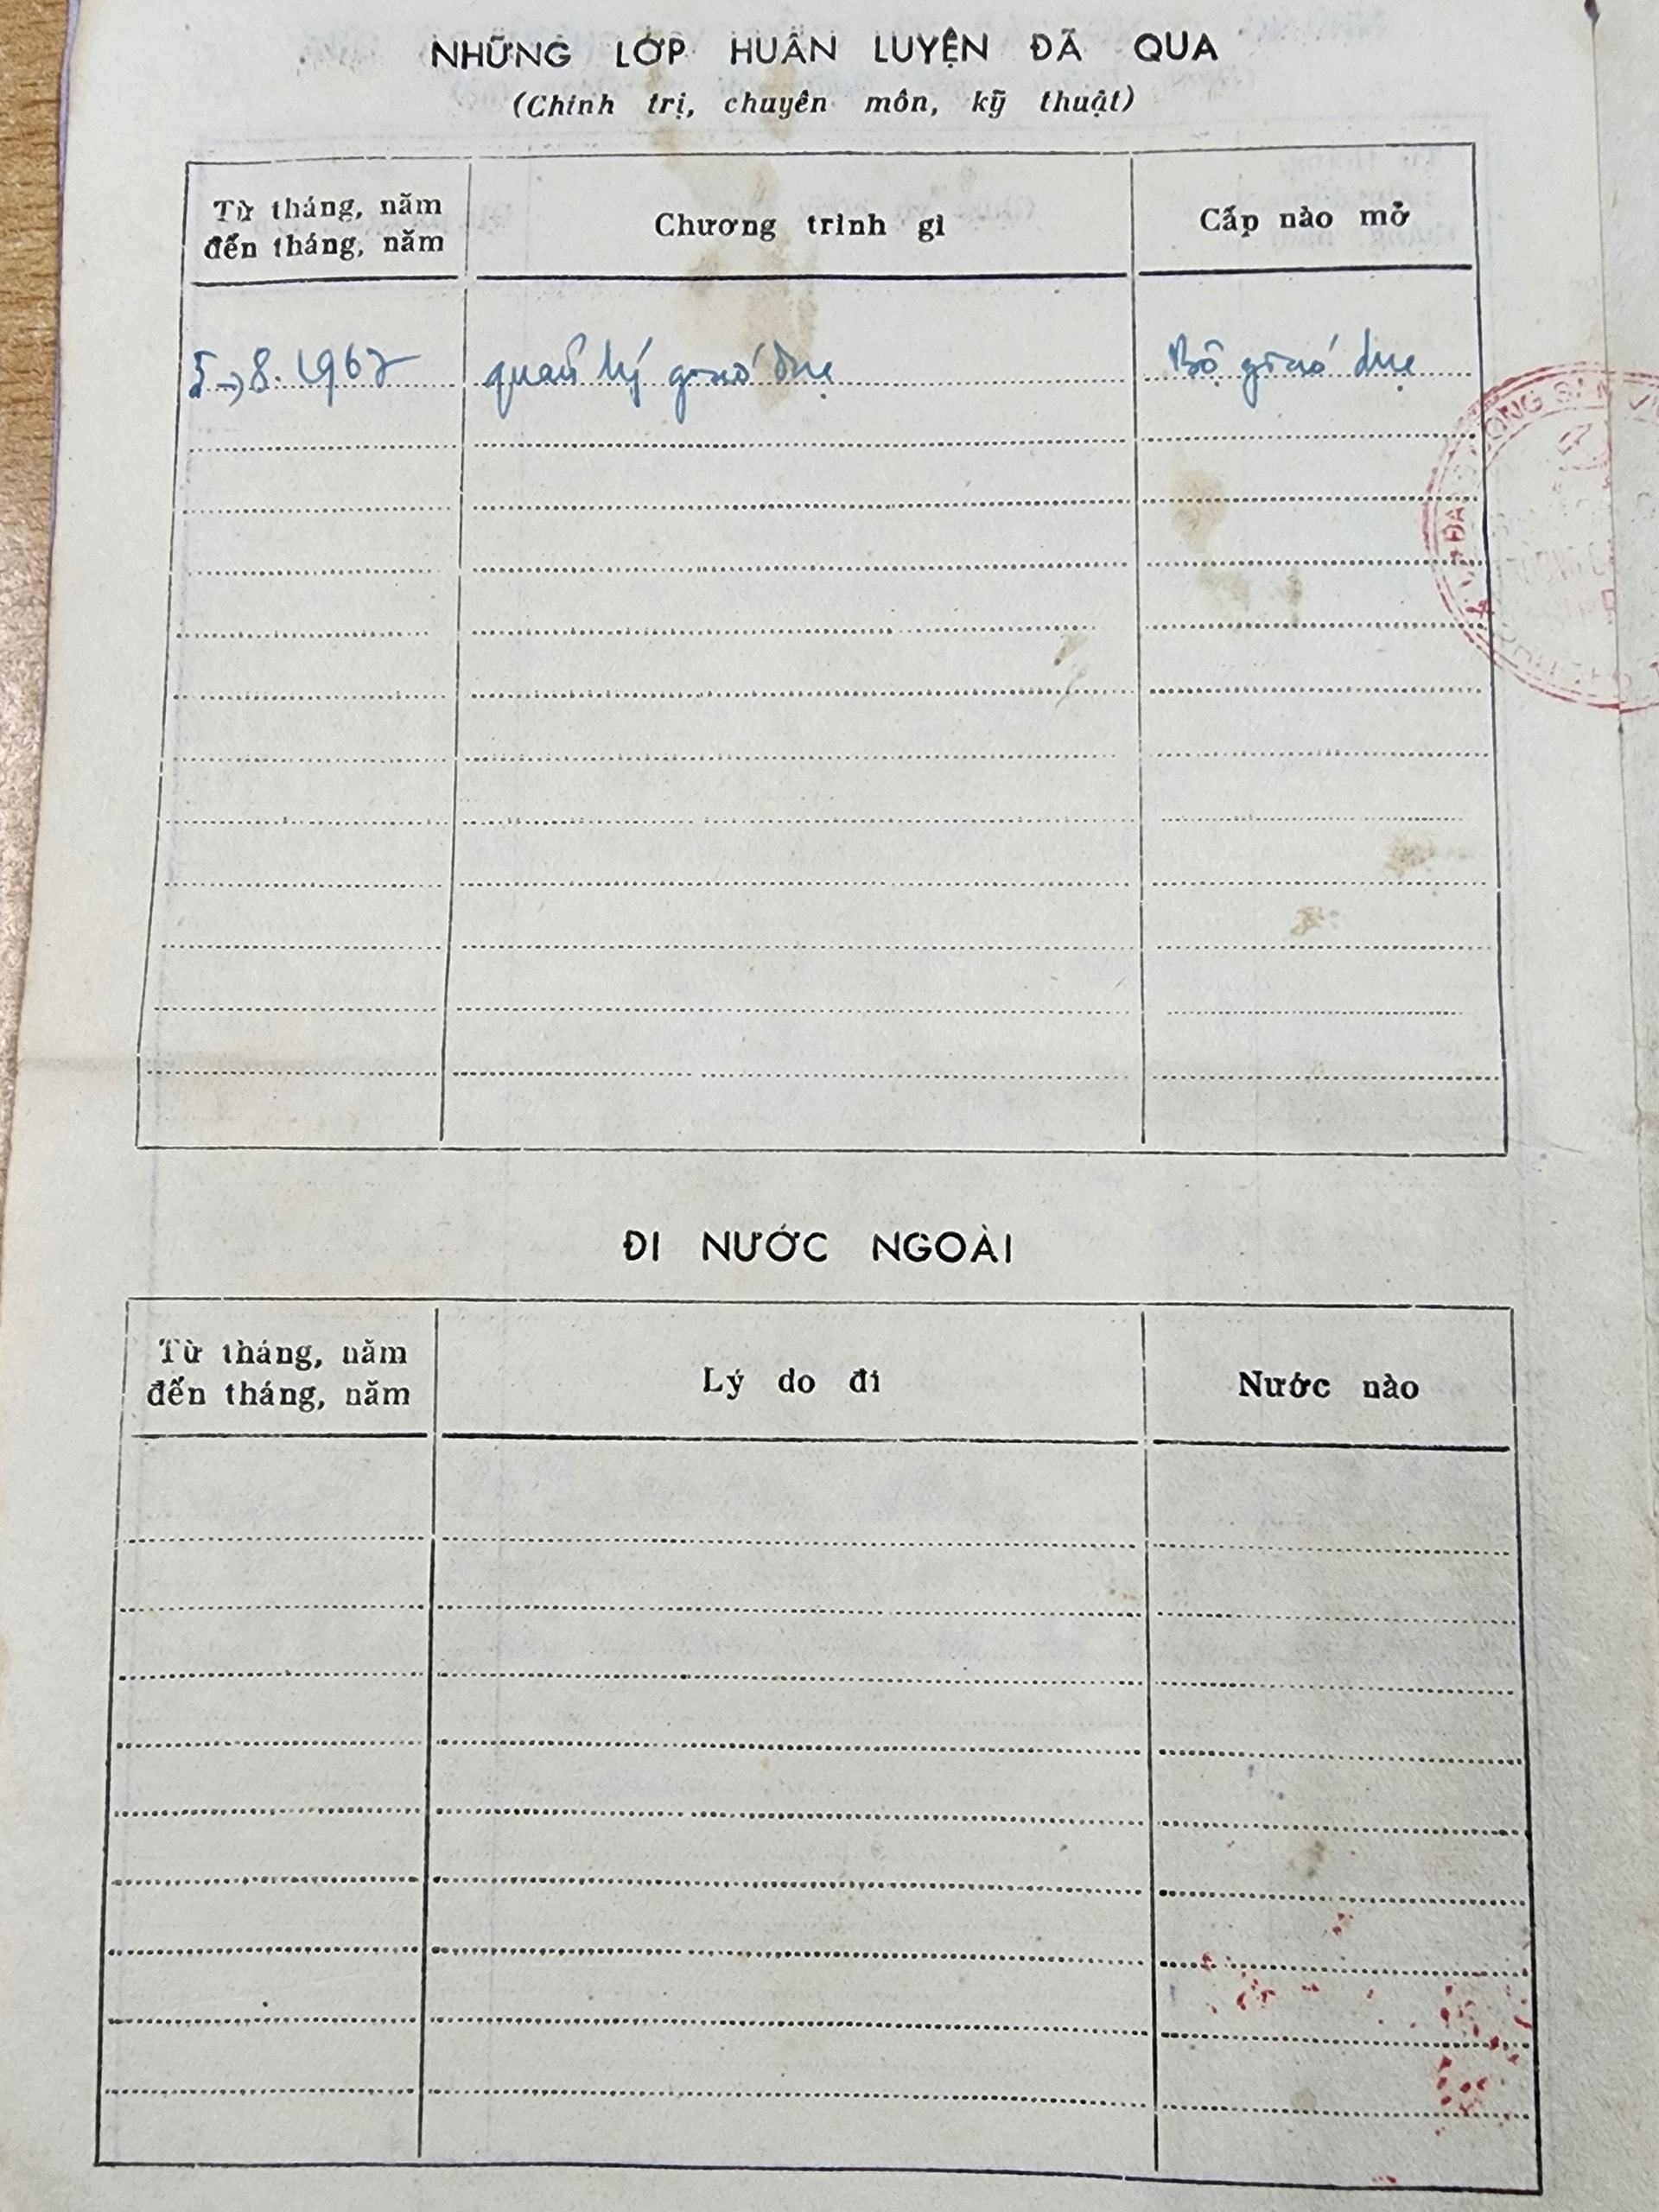 NHỮNG LỚP HUẤN LUYỆN ĐÃ QUA
(Chính trị, chuyên môn, kỹ thuật)
Từ tháng, năm
đến tháng, năm
Chương trình gì
Cấp nào mở
5→8.1967
quản lý giáo dục
Bộ giáo dục
ĐẢNG CỘNG SẢN VIỆ
ĐI NƯỚC NGOÀI
Từ tháng, năm
đến tháng, năm
Lý do đi
Nước nào